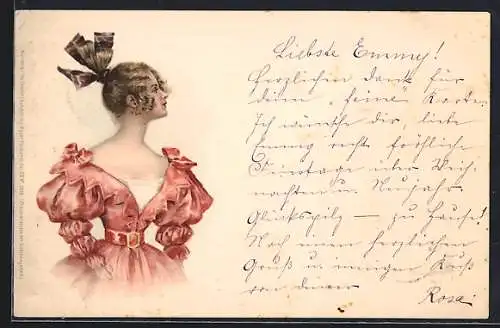 Liebste Emmy!
Herzlichen Dank für
deine "feine" Karte.
Ich wünsche dir, liebe
Emmy recht fröhliche
Feiertage über Weih-
nachten u. Neujahr
Glückspilz — zu Hause!
Noch einen herzlichen
Gruß u. innigen Kuß
von deiner
Rosa